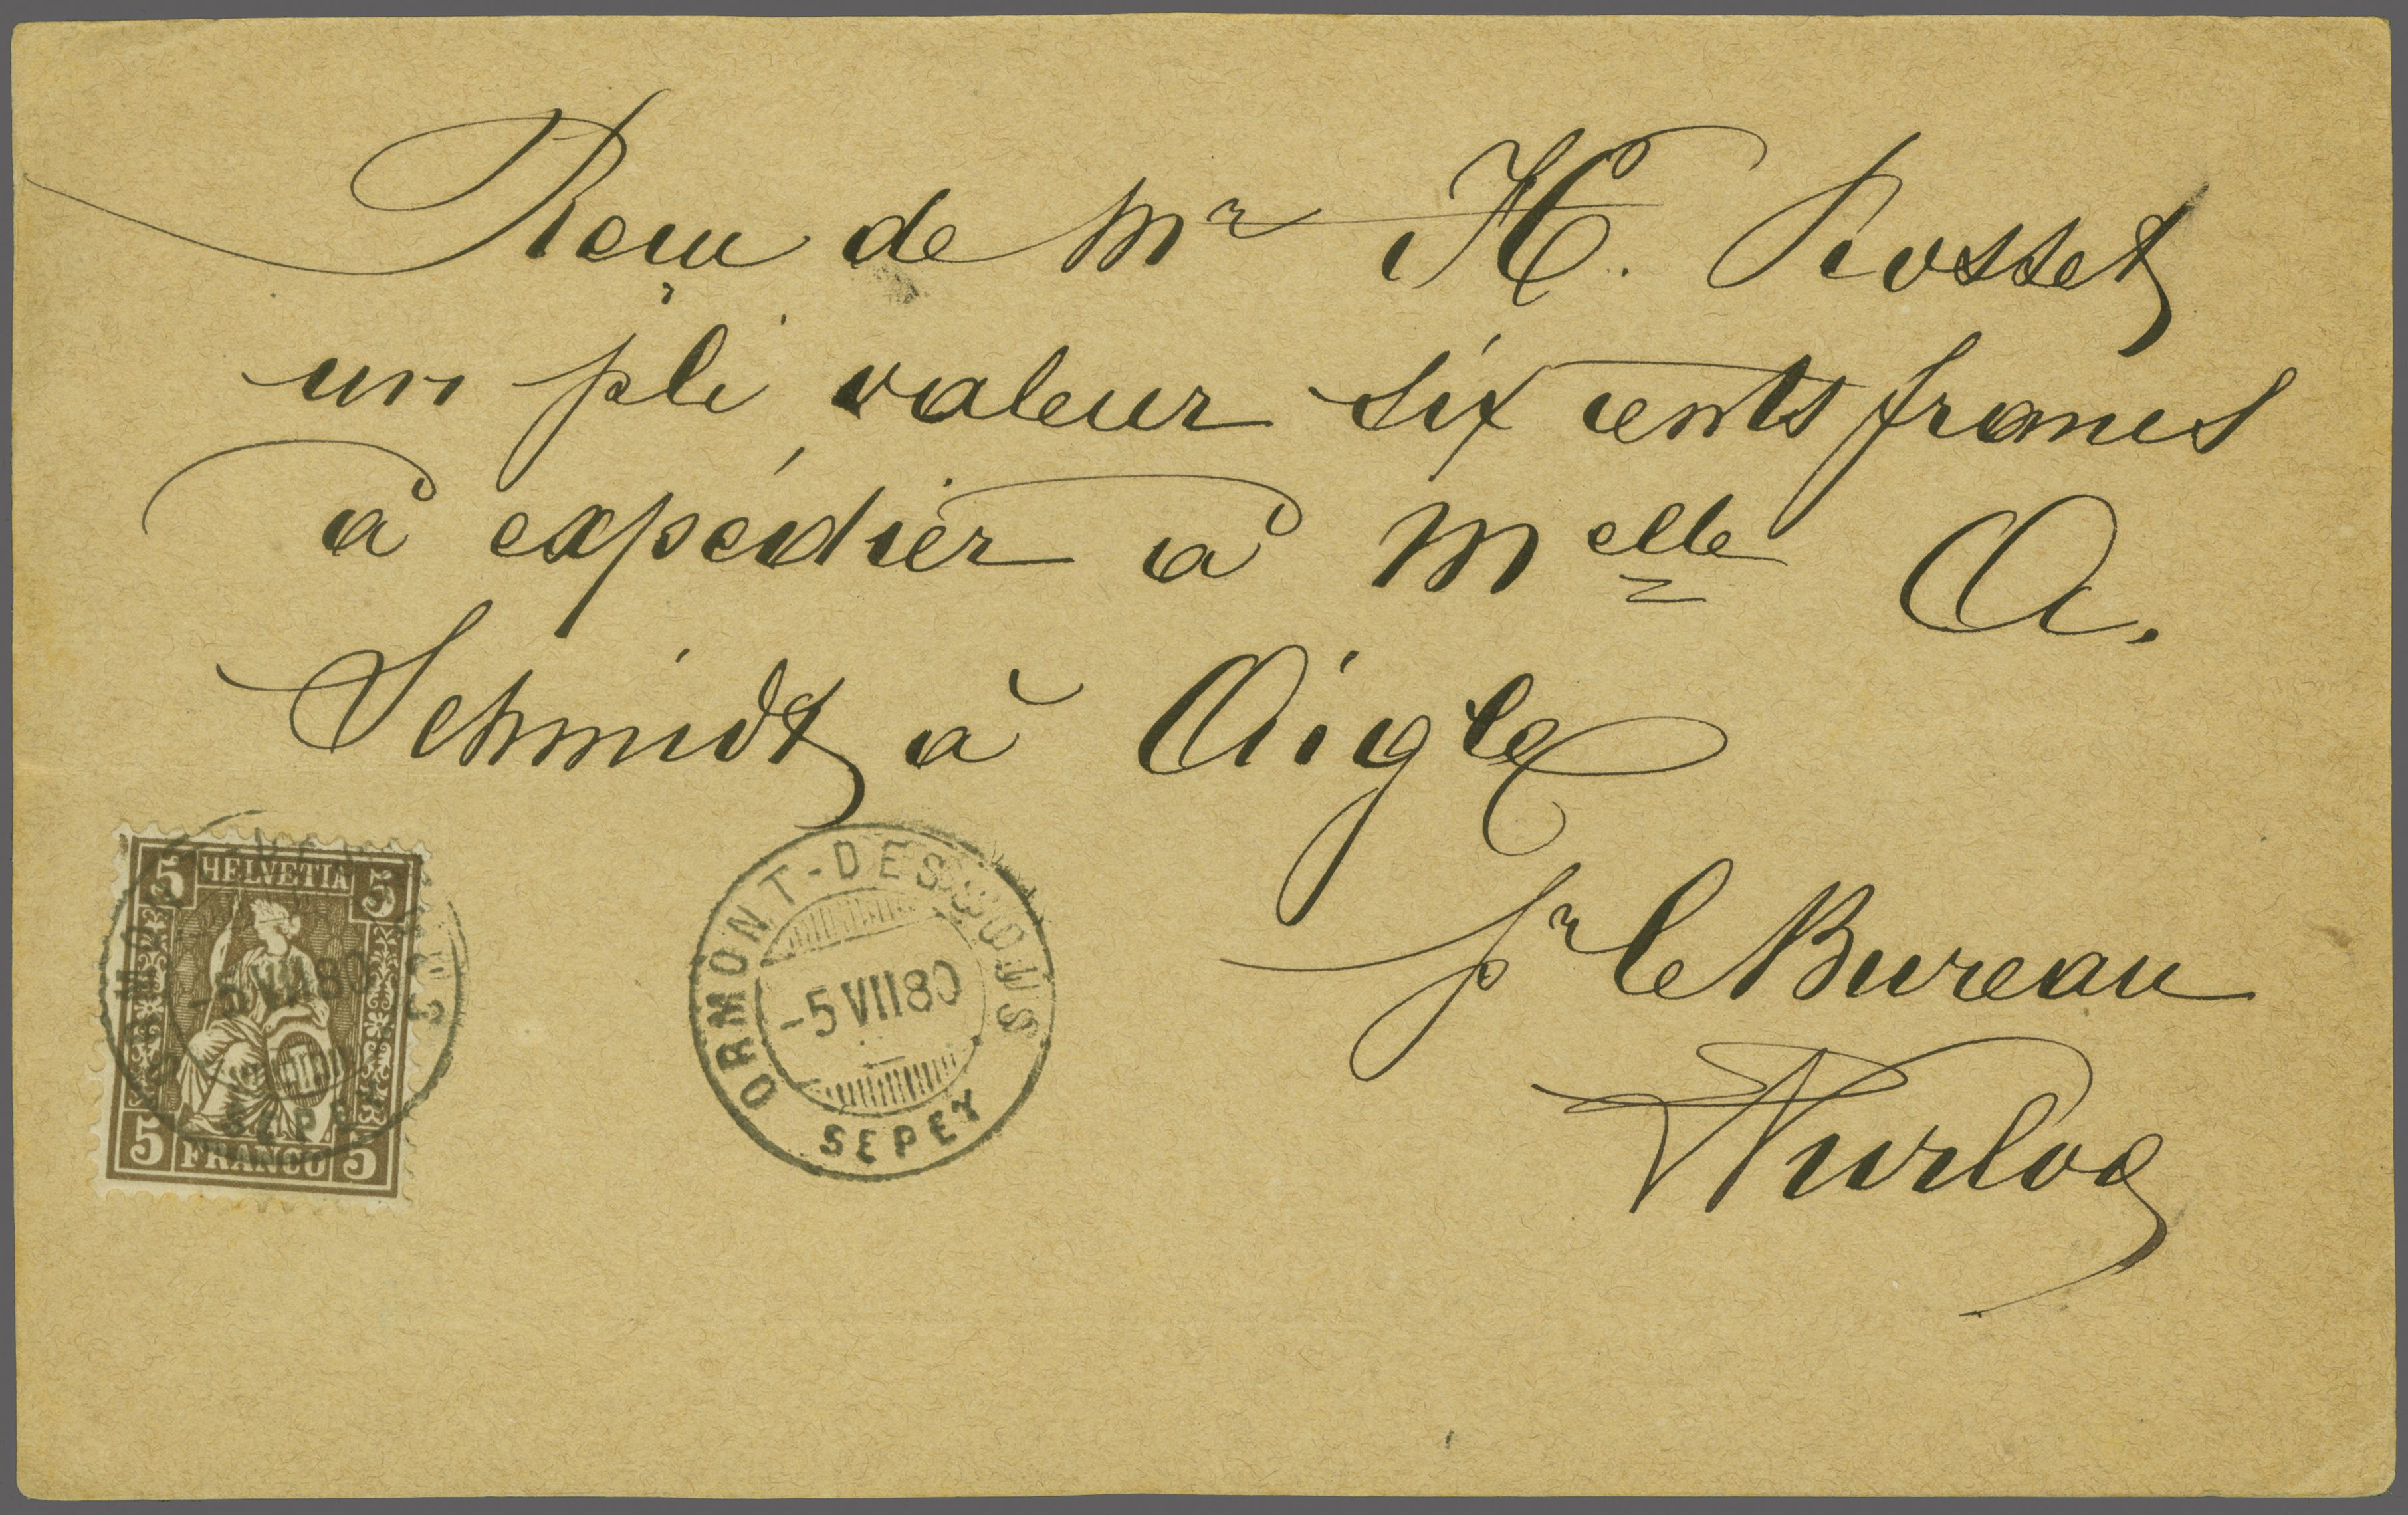 Reçu de Mr H. Rosset
un pli valeur six cents francs
à expédier à Melle A.
Schmidt à Aigle
pr le Bureau
5 HELVETIA 5
5 FRANCO 5
-5 VII 80
SEPEY
ORMONT-DESSOUS
-5 VII 80
SEPEY